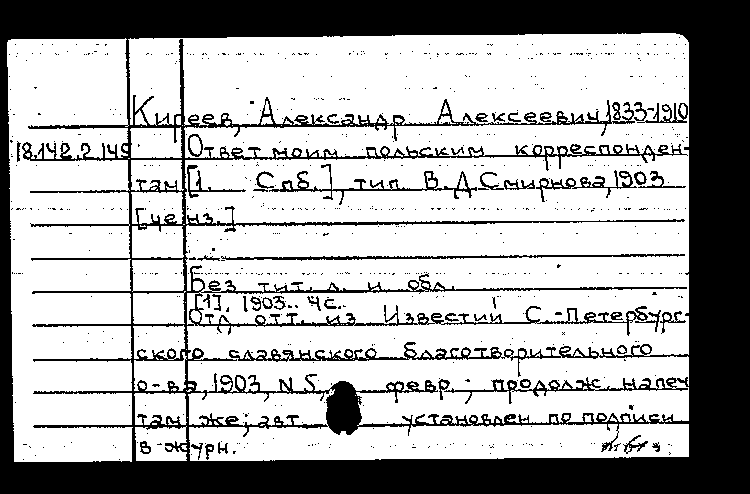 Киреев, Александр Алексеевич, 1833-1910
18.142.2.149 Ответ моим польским корреспонден-
там [1. Спб.], тип. В.Д.Смирнова, 1903
[ценз.]
Без тит. л. и обл.
[1]. 1903. 4с.
Отд. отт. из Известий С.-Петербург-
ского славянского благотворительного
о-ва, 1903, N 5, февр.; продолж. напеч
там же; авт. установлен по подписи
в журн.